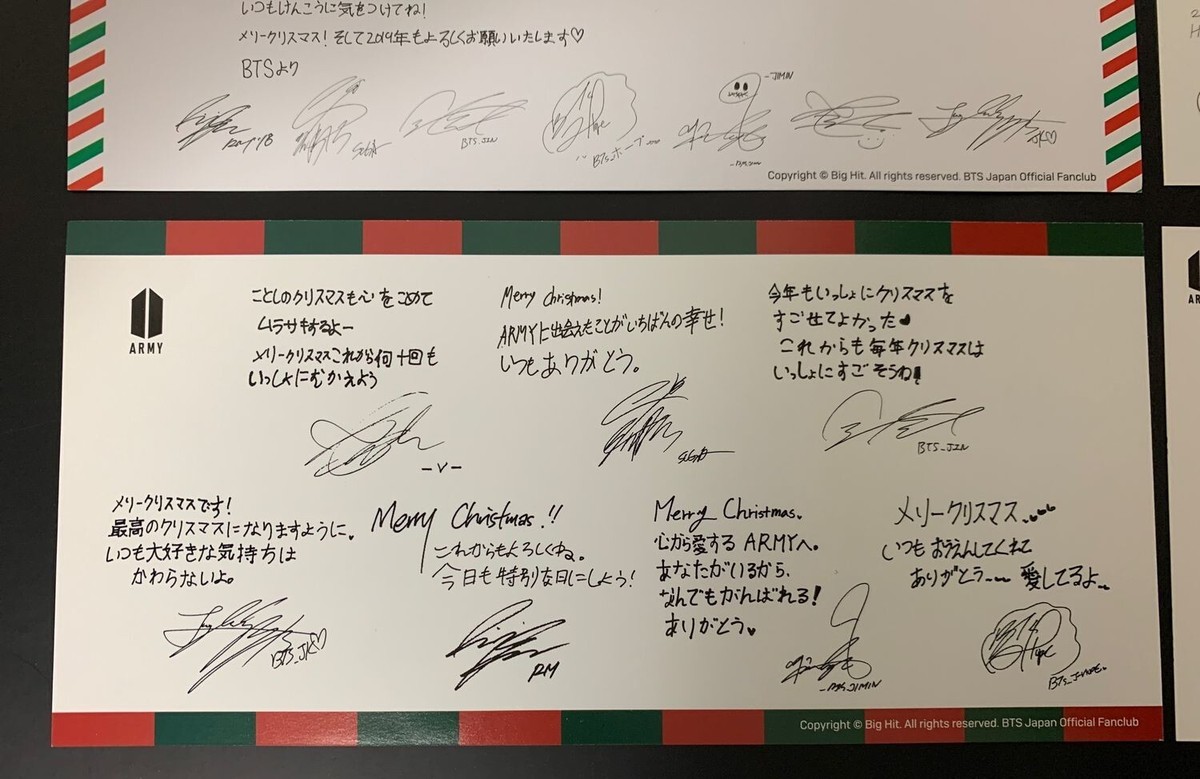 いつもけんこうに気をつけてね!
メリークリスマス! そして2019年もよろしくお願いいたします♡
BTSより
RM
SUGA
BTS_JIN
BTS_ホープ
-JIMIN
-BTS_JIMIN
JK♡
Copyright © Big Hit. All rights reserved. BTS Japan Official Fanclub
ARMY
ことしのクリスマスも心をこめて
ムラサキするよー
メリークリスマスこれから何十回も
いっしょにむかえよう
-V-
Merry christmas!
ARMYに出会えたことがいちばんの幸せ!
いつもありがとう。
SUGA
今年もいっしょにクリスマスを
すごせてよかった♥
これからも毎年クリスマスは
いっしょにすごそうね!
BTS_JIN
メリークリスマスです!
最高のクリスマスになりますように。
いつも大好きな気持ちは
かわらないよ。
BTS_JK♡
Merry Christmas!!
これからもよろしくね。
今日も特別な日にしよう!
RM
Merry Christmas.
心から愛する ARMYへ。
あなたがいるから、
なんでもがんばれる!
ありがとう♥
-BTS_JIMIN
メリークリスマス...♥♥
いつもおうえんしてくれて
ありがとう~~ 愛してるよ~
BTS_J-HOPE.
Copyright © Big Hit. All rights reserved. BTS Japan Official Fanclub